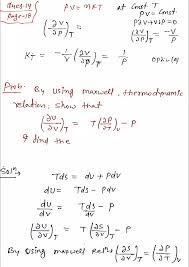 Ques-14
Page-18
PV = nRT at Const T
PV = Const.
PdV + VdP = 0
(∂V/∂P)_T = (∂V/∂P)_T = -V/P
K_T = -1/V (∂V/∂P)_T = 1/P
Prob. By using maxwell, thermodynamic
relation, show that
(∂U/∂V)_T = T(∂P)_V - P
& find the
Sol^n
Tds = dU + Pdv
dU = Tds - Pdv
dU/dv = Tds - P
(∂U/∂V)_T = T(∂S/∂V)_T - P
By using maxwell Rel^n → (∂S/∂V)_T = (∂P/∂T)_V